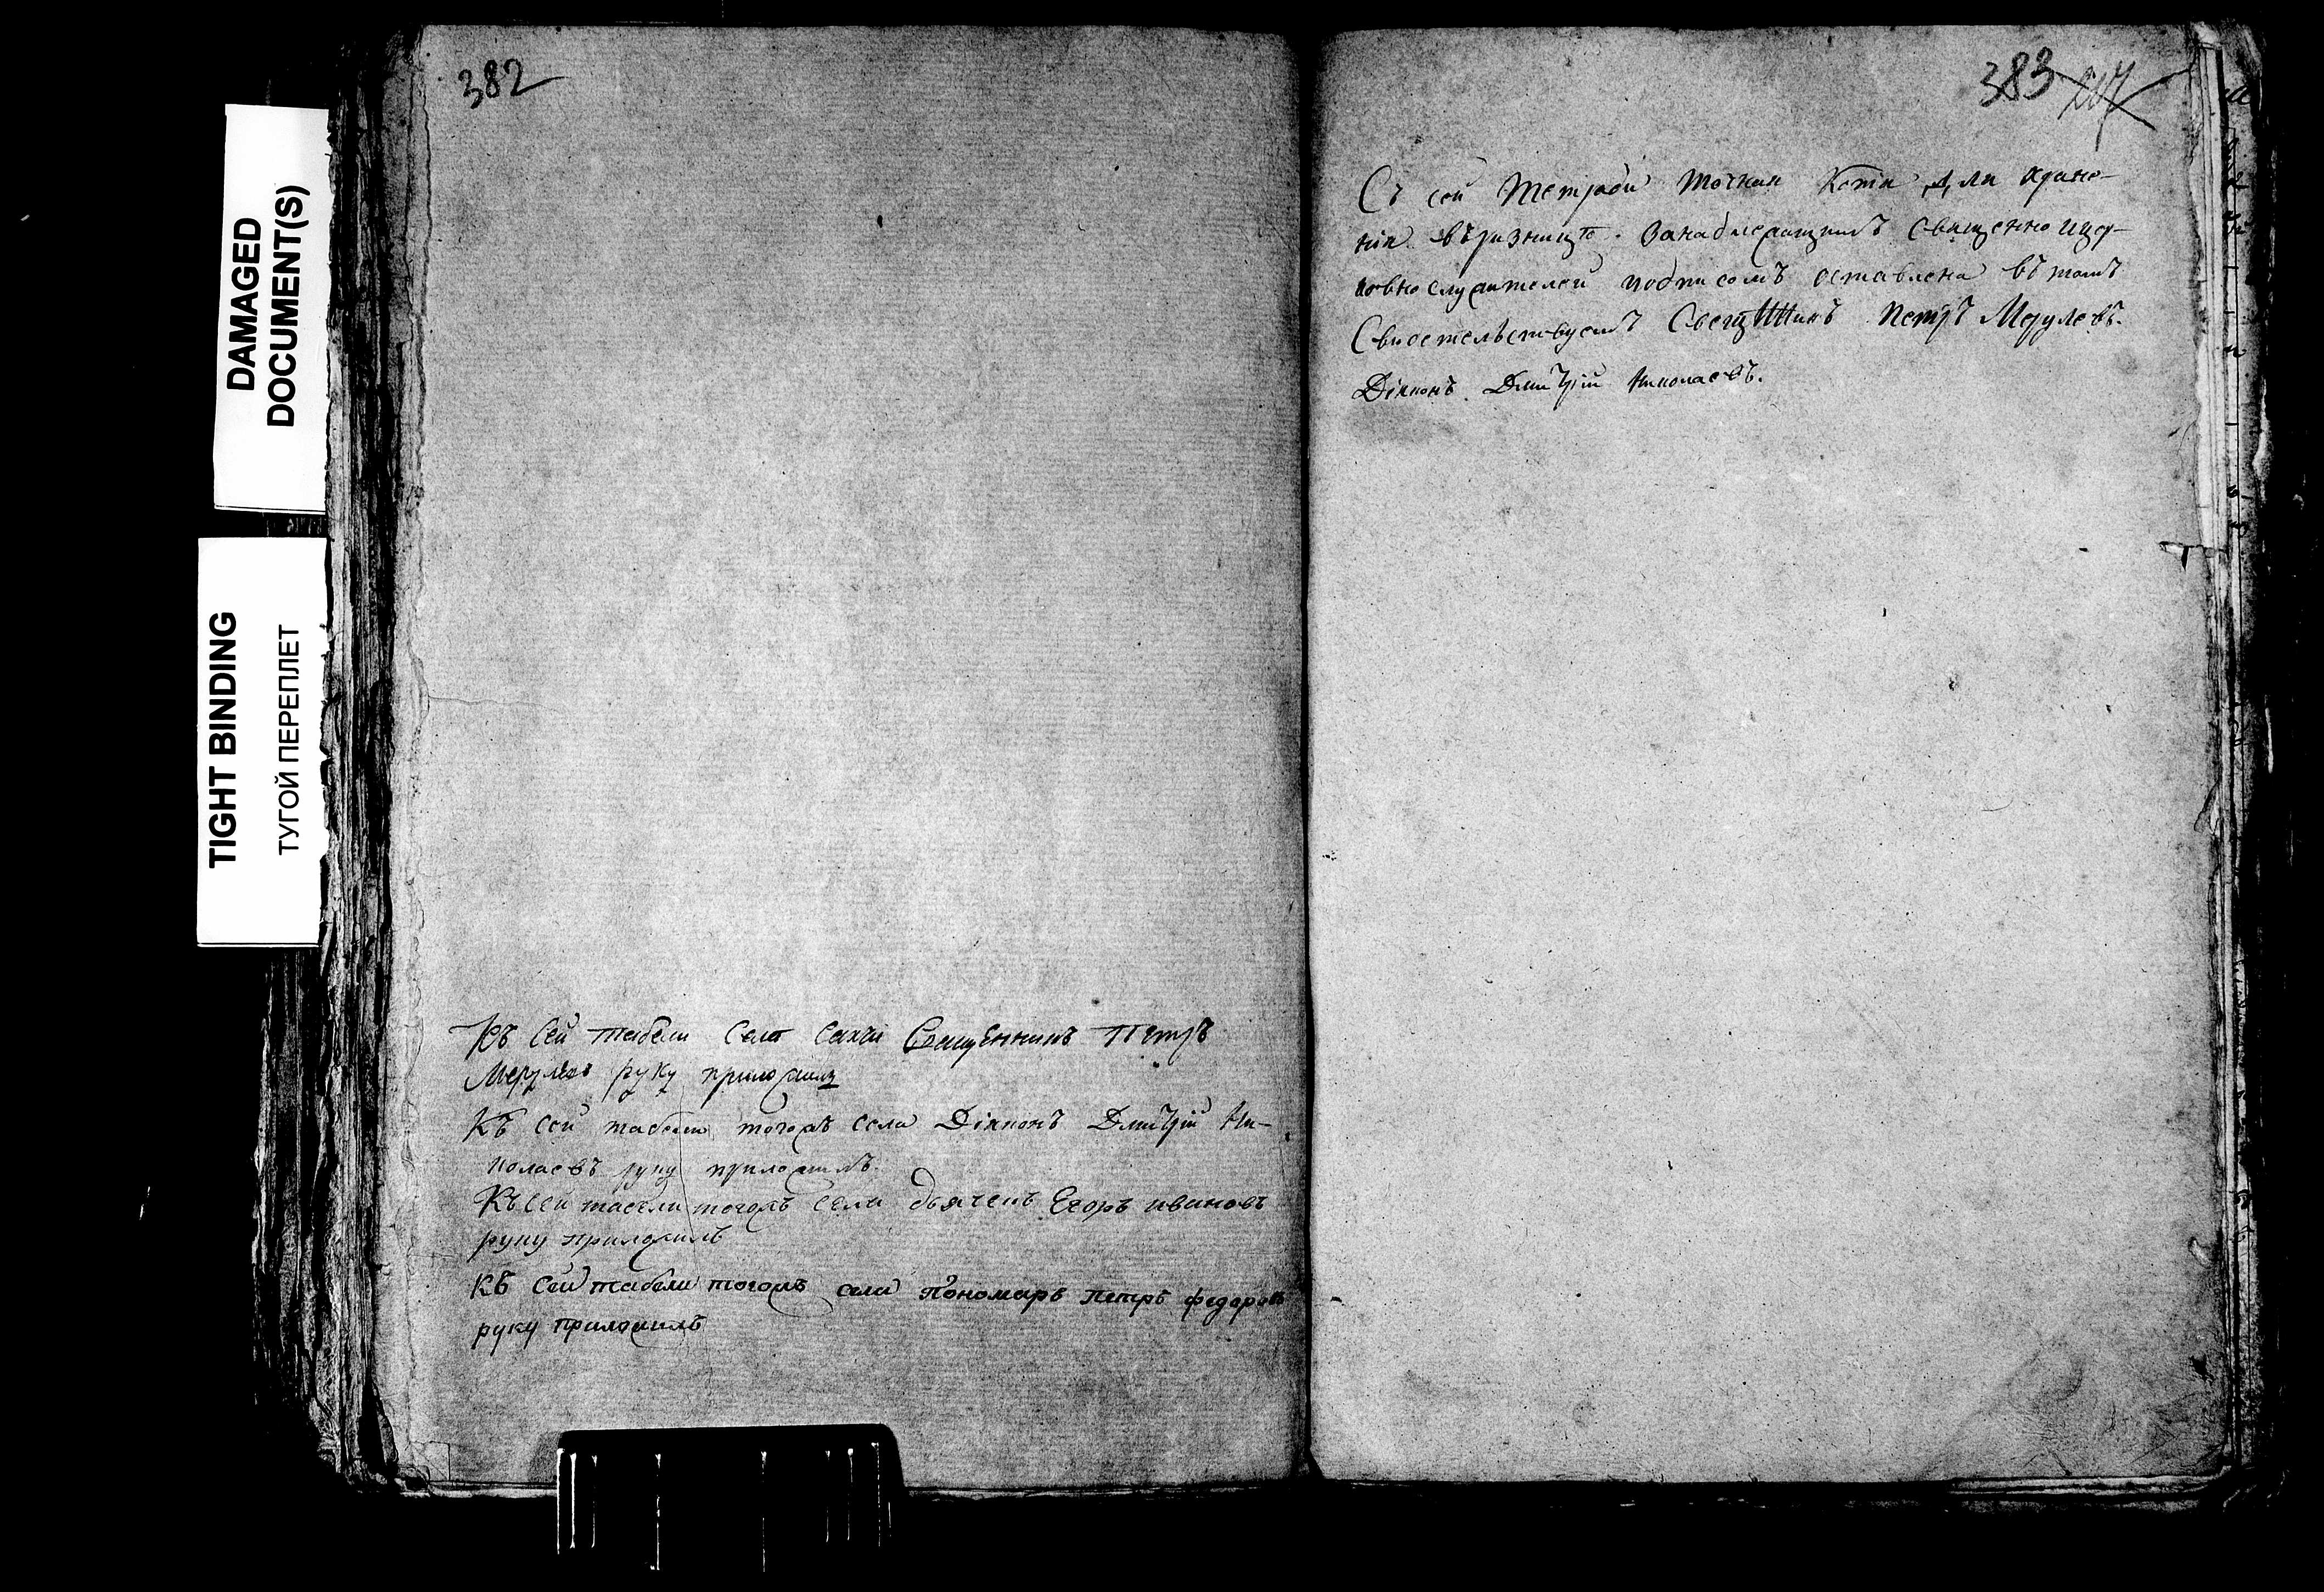 DAMAGED
DOCUMENT(S)
TIGHT BINDING
ТУГОЙ ПЕРЕПЛЕТ
382
Къ сей табели села Священникъ Петръ
Мерулевъ руку приложилъ
Къ сей табели тогожъ села Діаконъ Дмитрій Ни-
колаевъ руку приложилъ.
Къ сей табели тогожъ села дьячекъ Егоръ ивановъ
руку приложилъ
къ сей табели тогожъ села пономарь петръ федоровъ
руку приложилъ
383
Съ сей тетради точная Копія для хране-
нія въ ризницѣ. за надлежащимъ священно и цер-
ковно служителей подписомъ оставлена въ томъ
Свидетельствуемъ Петръ Мерулевъ.
Діаконъ Дмитрій Николаевъ.